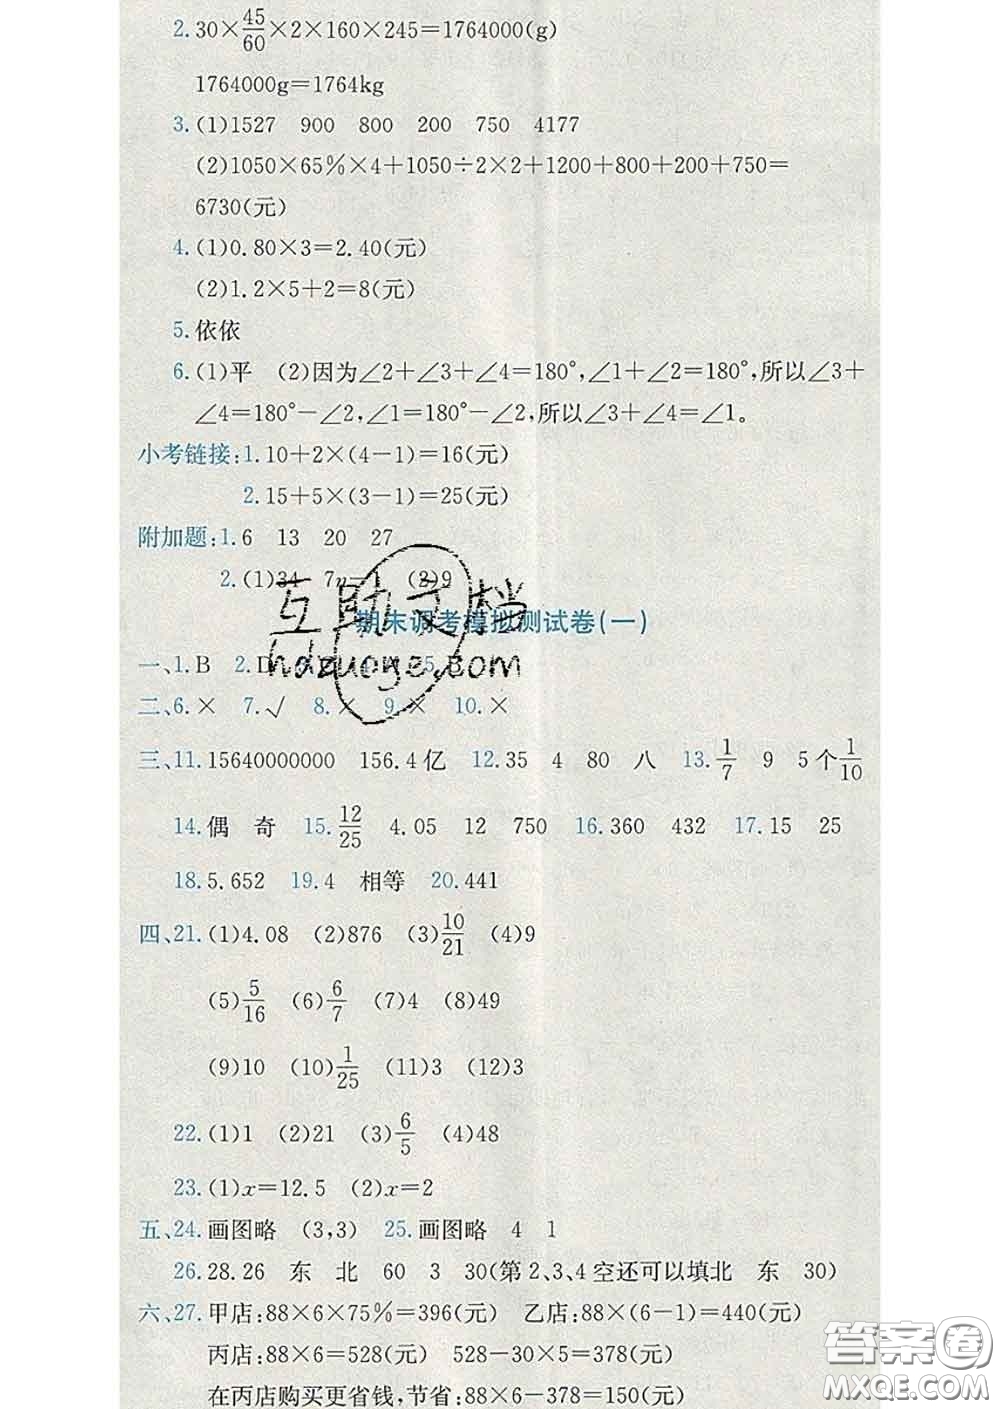 2. 30×45/60×2×160×245=1764000(g)
1764000g=1764kg
3. (1)1527 900 800 200 750 4177
(2)1050×65%×4+1050÷2×2+1200+800+200+750=
6730(元)
4. (1)0.80×3=2.40(元)
(2)1.2×5+2=8(元)
5. 依依
6. (1)平 (2)因为∠2+∠3+∠4=180°,∠1+∠2=180°,所以∠3+
∠4=180°-∠2,∠1=180°-∠2,所以∠3+∠4=∠1。
小考链接:1. 10+2×(4-1)=16(元)
2. 15+5×(3-1)=25(元)
附加题:1. 6 13 20 27
2. (1)34 7n-1 (2)9
互助文档
期末调考模拟测试卷(一)
hdzuoye.com
一、1. B 2. D 5. B
二、6. × 7. √ 8. × 9. × 10. ×
三、11. 15640000000 156.4亿 12. 35 4 80 八 13. 1/7 9 5个1/10
14. 偶 奇 15. 12/25 4.05 12 750 16. 360 432 17. 15 25
18. 5.652 19. 4 相等 20. 441
四、21. (1)4.08 (2)876 (3)10/21 (4)9
(5)5/16 (6)6/7 (7)4 (8)49
(9)10 (10)1/25 (11)3 (12)3
22. (1)1 (2)21 (3)6/5 (4)48
23. (1)x=12.5 (2)x=2
五、24. 画图略 (3,3) 25. 画图略 4 1
26. 28.26 东 北 60 3 30(第2、3、4空还可以填北 东 30)
六、27. 甲店:88×6×75%=396(元) 乙店:88×(6-1)=440(元)
丙店:88×6=528(元) 528-30×5=378(元)
在丙店购买更省钱,节省:88×6-378=150(元)
答案圈
MXQE.COM